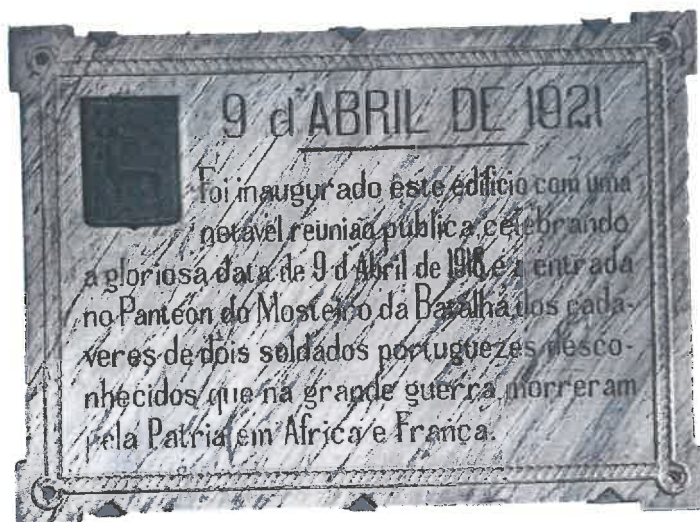 9 d'ABRIL DE 1921
Foi inaugurado este edificio com uma
notavel reunião publica, celebrando
a gloriosa data de 9 d'Abril de 1918, e a entrada
no Panteon do Mosteiro da Batalha, dos cada-
veres de dois soldados portuguezes desco-
nhecidos que na grande guerra morreram
pela Patria em Africa e França.